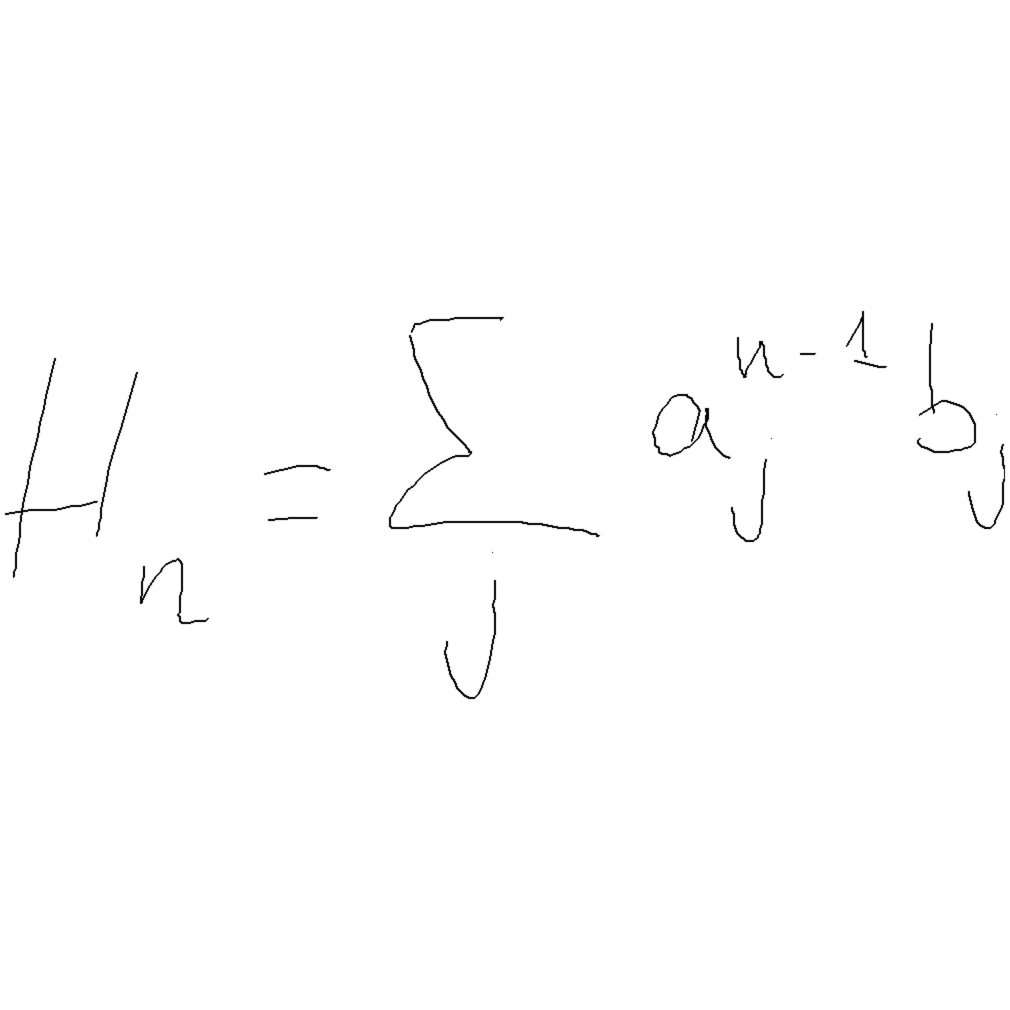 H_n = \sum_j a_j^{n-1} b_j